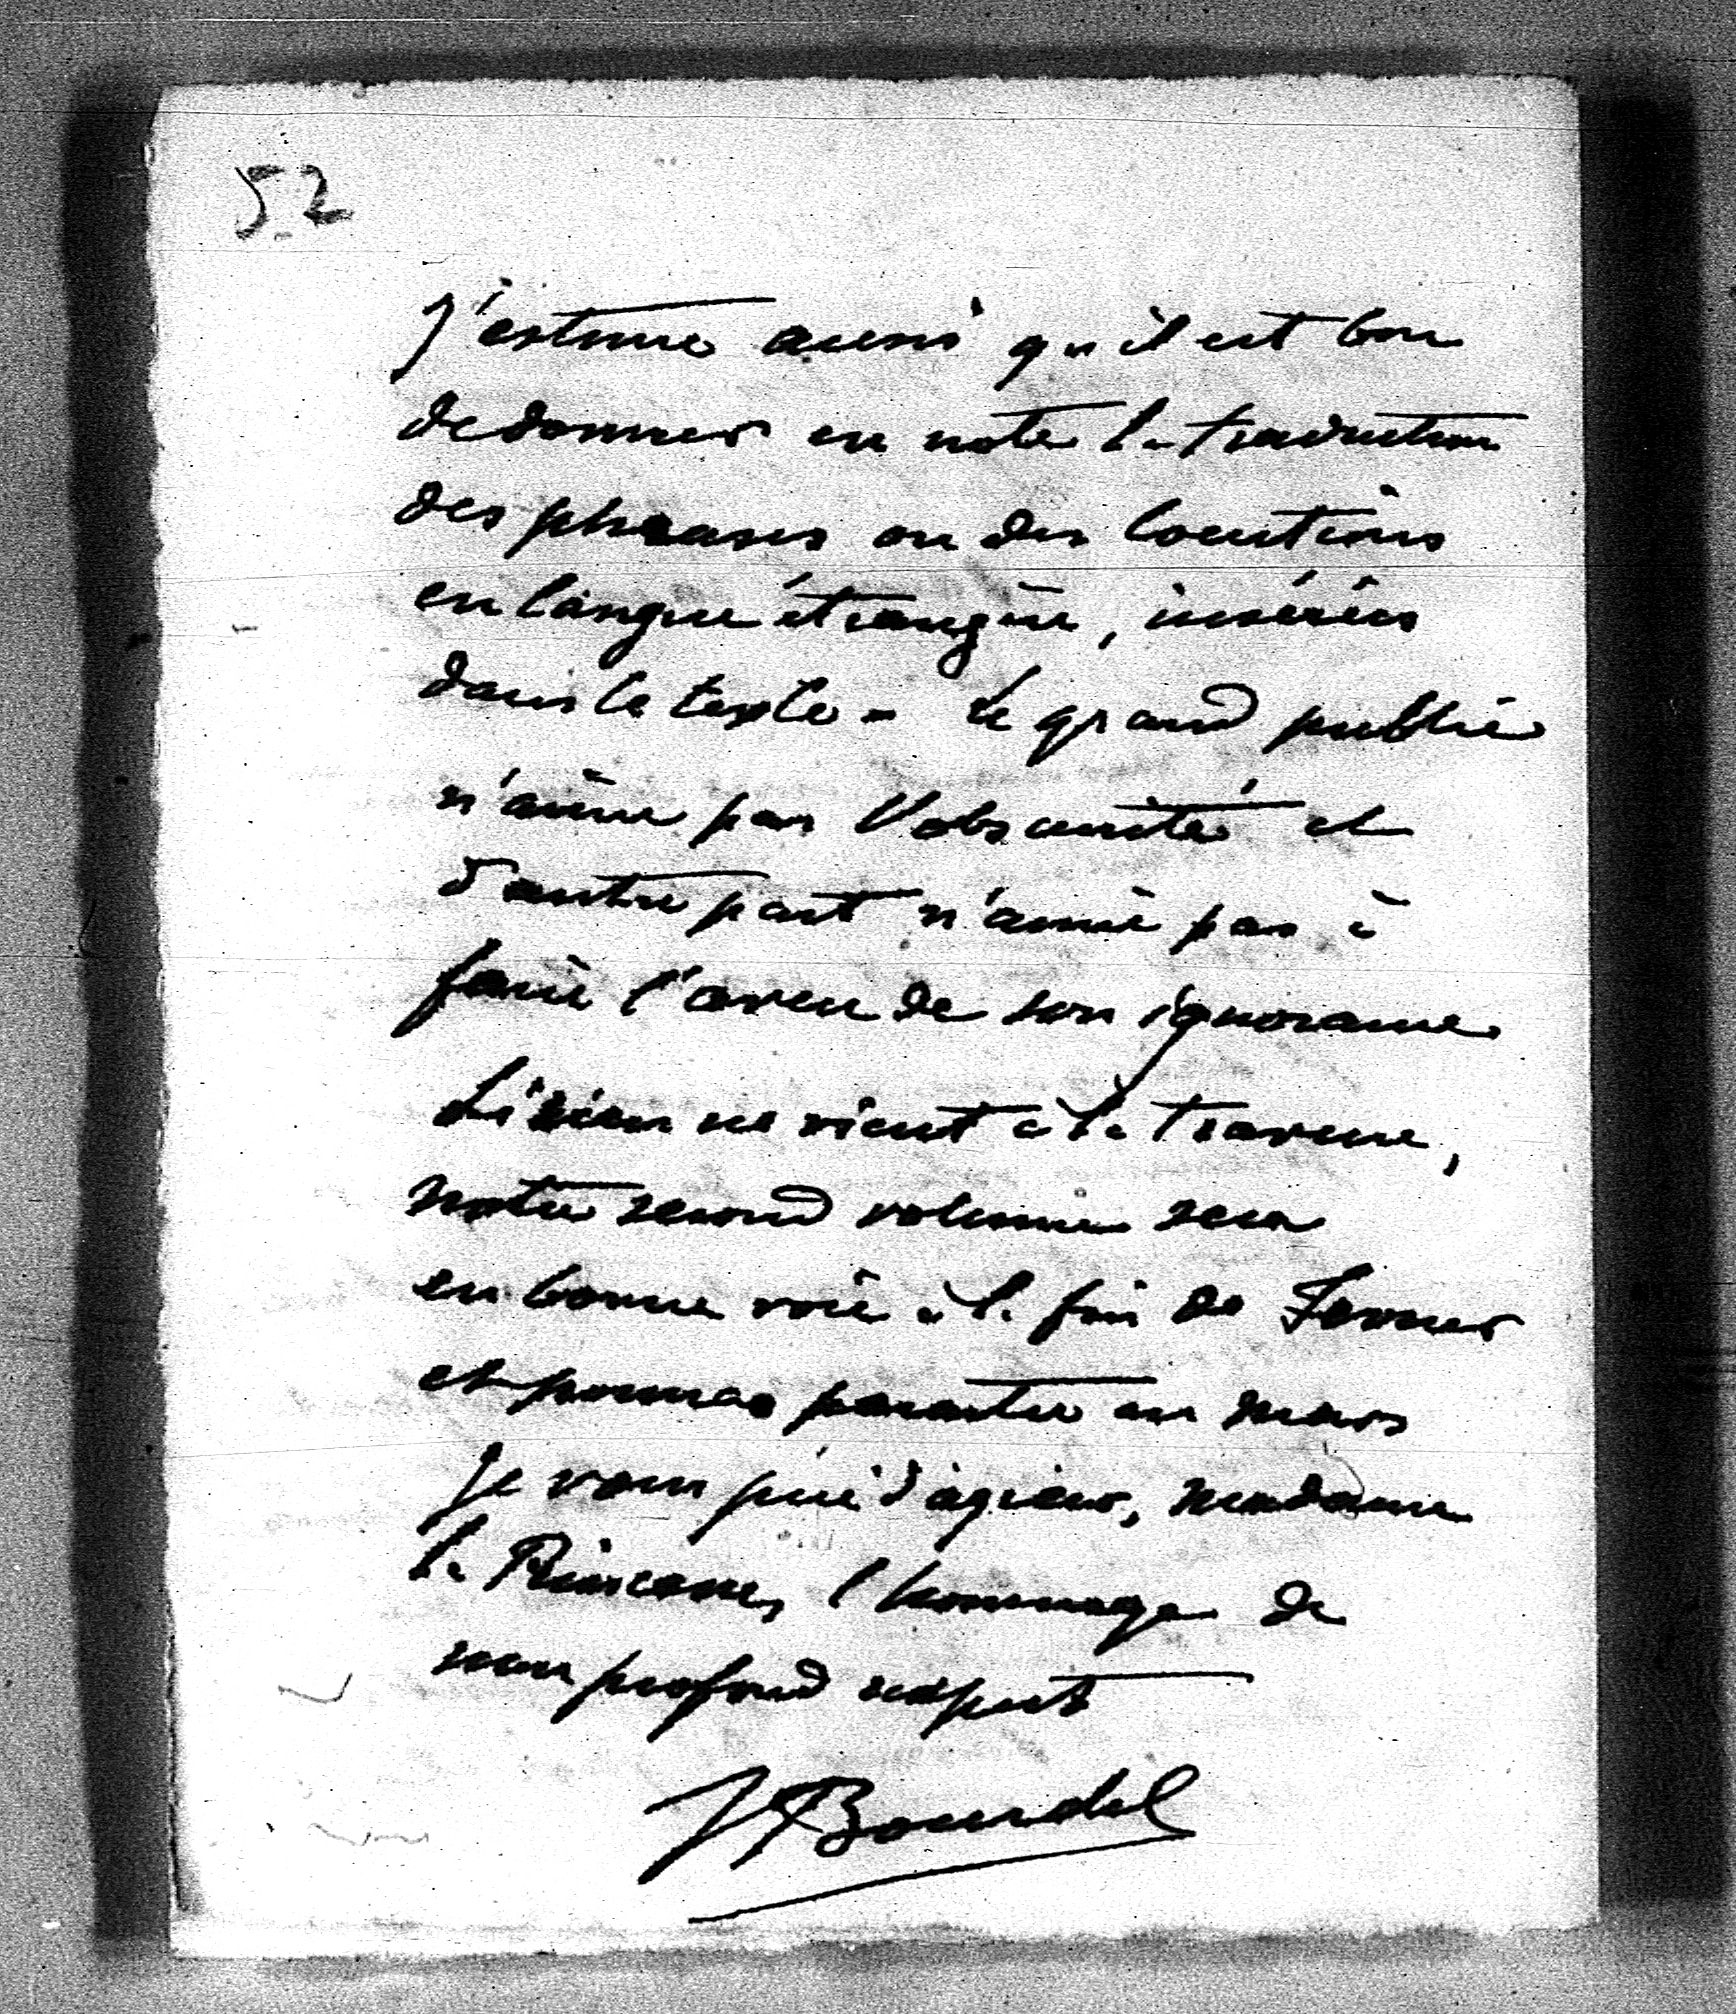 52
J'estime aussi qu'il est bon
de donner en note la traduction
des phrases ou des locutions
en langue étrangère, insérées
dans le texte - Le grand public
n'aime pas l'obscurité et
d'autre part n'aime pas à
faire l'aveu de son ignorance
Si rien ne vient à la traverse,
notre second volume sera
en bonne voie à la fin de Fevrier
et pourra paraitre en mars
Je vous prie d'agréer, Madame
la Princesse, l'hommage de
mon profond respect
J Bourdel